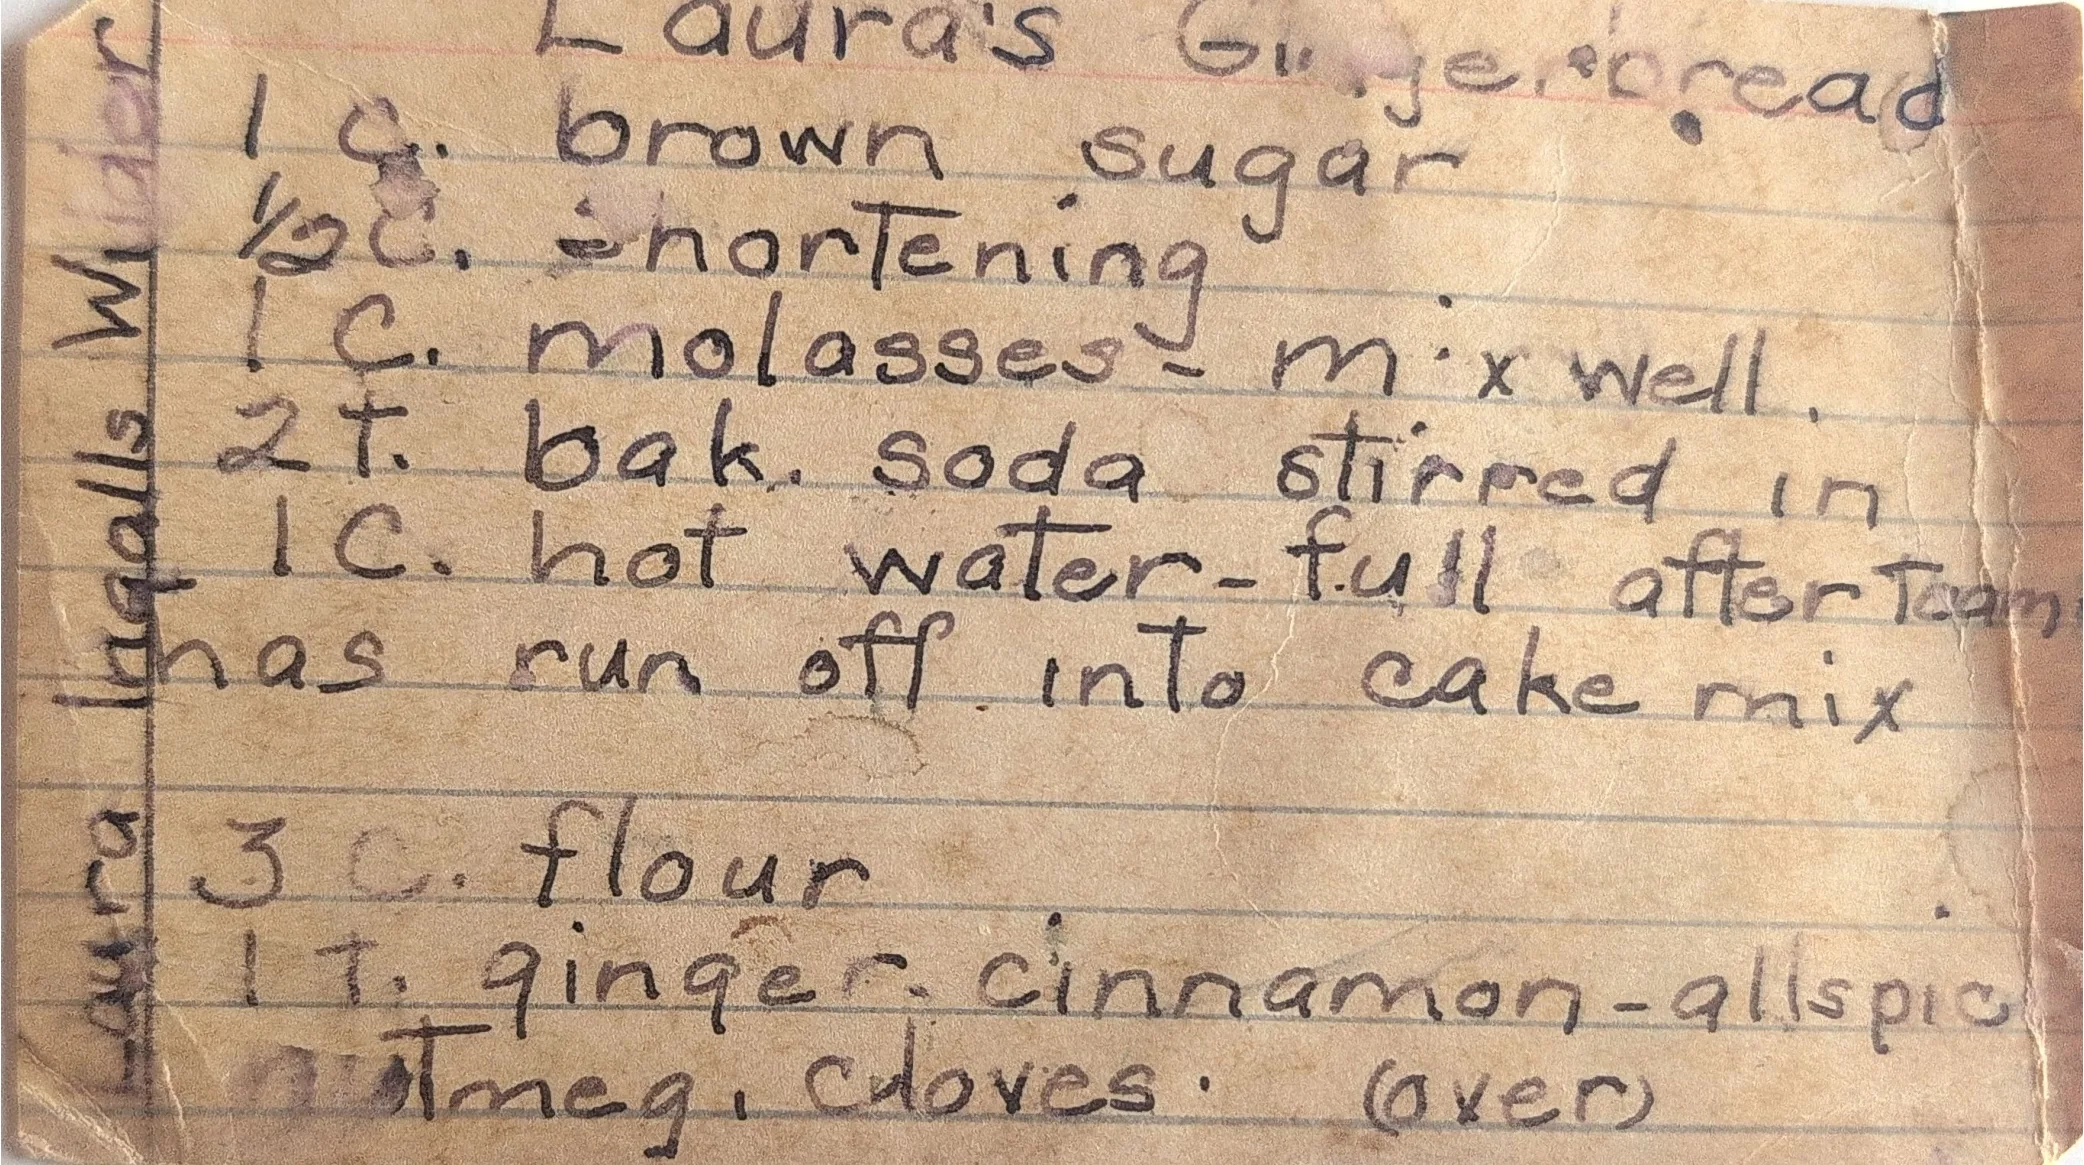 Laura's Gingerbread
1 c. brown sugar
1/2 c. shortening
1 c. molasses - mix well.
2 t. bak. soda stirred in
1 c. hot water - full after foam
has run off into cake mix
3 c. flour
1 t. ginger. cinnamon - allspic
nutmeg, cloves. (over)
Laura Ingalls Wilder